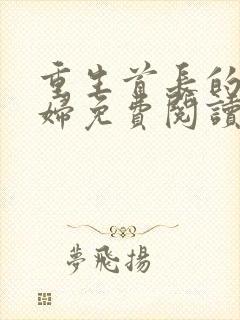 重生首長的
婦免費閱讀
夢飛揚